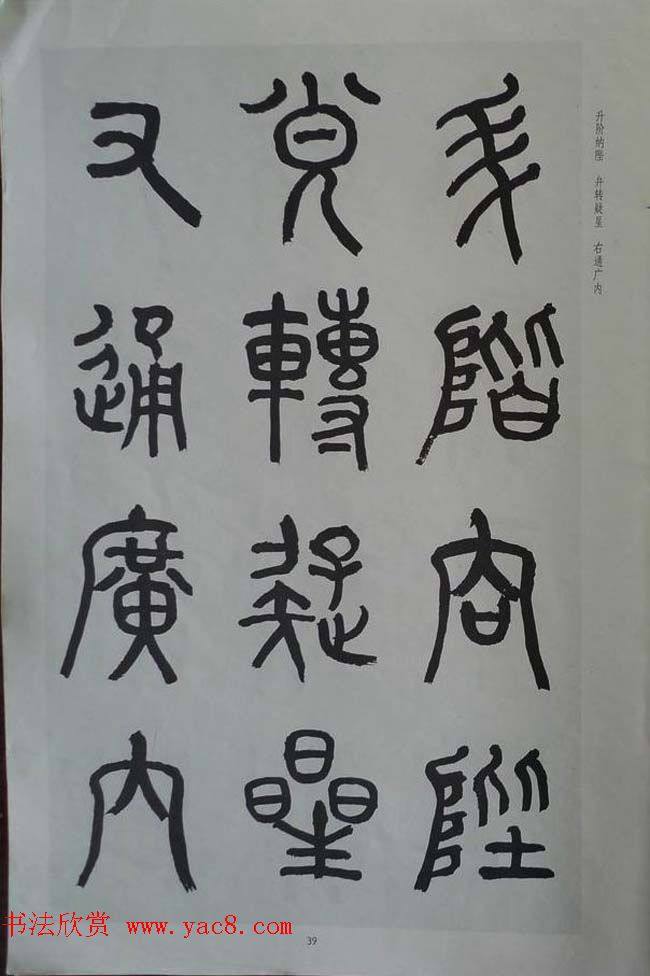 升階内陛
弁轉疑星
右通廣内
升阶纳陛 弁转疑星 右通广内
书法欣赏 www.yac8.com
39